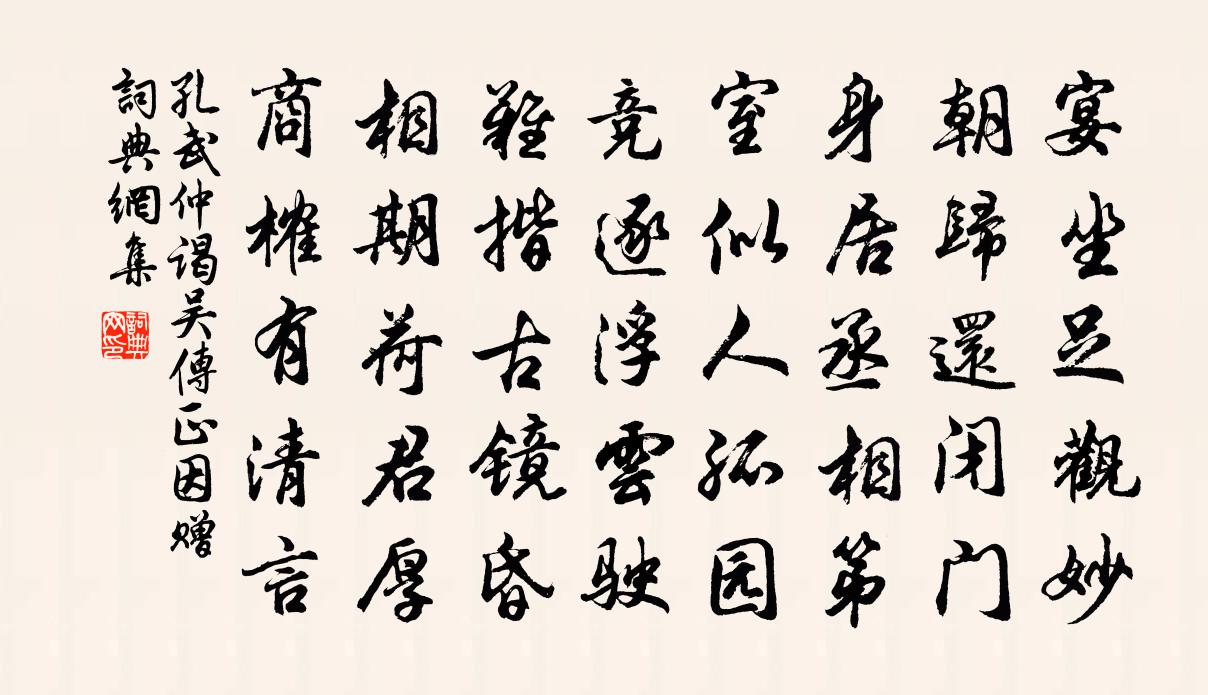 宴坐足觀妙
朝歸還闭门
身居丞相第
室似人孤园
竞逐浮雲駛
難揩古鏡昏
相期荷君厚
商榷有清言
孔武仲謁吴傳正因贈
詞典網集
詞典网印